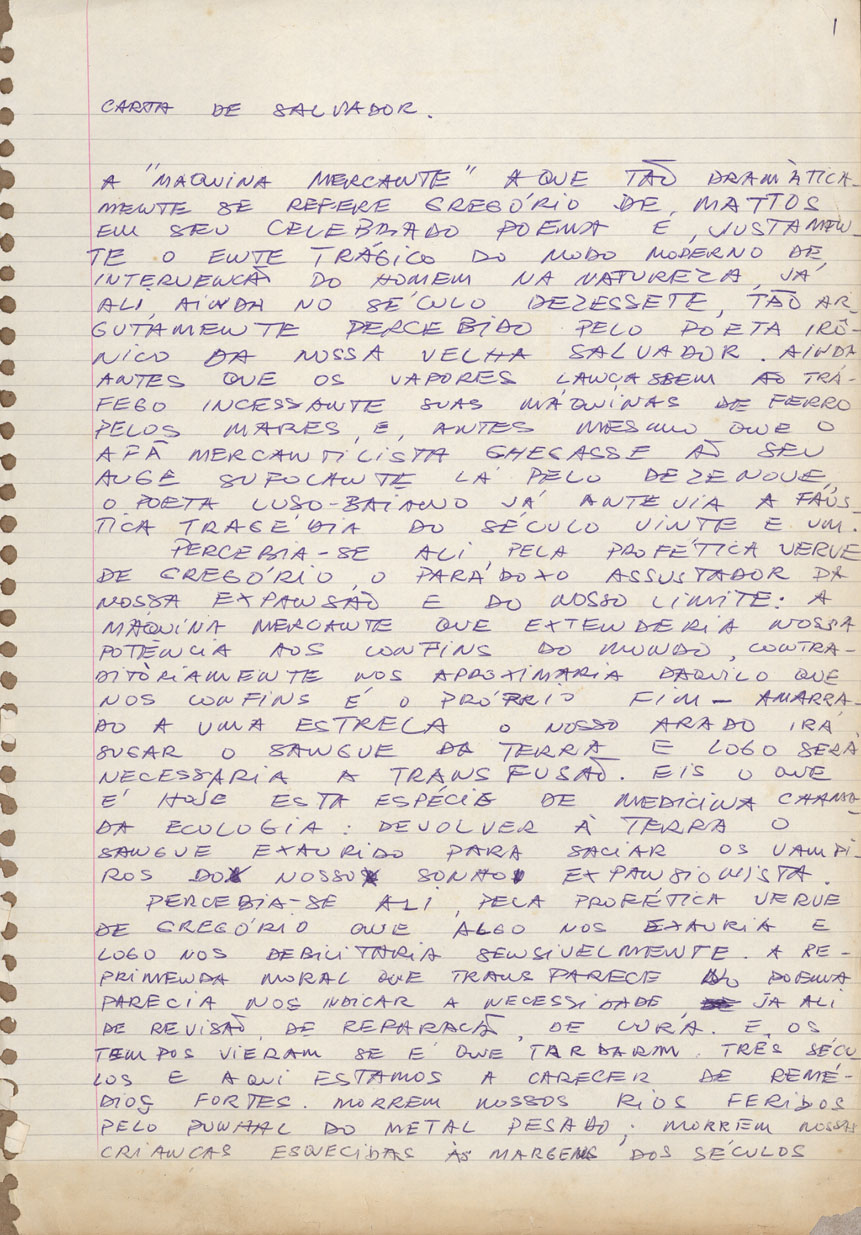 1
CARTA DE SALVADOR.
A "MAQUINA MERCANTE" A QUE TÃO DRAMÀTICA-
MENTE SE REFERE GREGÓRIO DE MATTOS
EM SEU CELEBRADO POEMA E, JUSTAMEN-
TE O ENTE TRÁGICO DO MODO MODERNO DE
INTERVENÇÃ DO HOMEM NA NATUREZA, JÁ
ALI, AINDA NO SÉCULO DEZESSETE, TÃO AR-
GUTAMENTE PERCEBIDO PELO POETA IRÔ-
NICO DA NOSSA VELHA SALVADOR. AINDA
ANTES QUE OS VAPORES LANÇASSEM AO TRÁ-
FEGO INCESSANTE SUAS MÁQUINAS DE FERRO
PELOS MARES, E, ANTES MESMO QUE O
AFÃ MERCANTILISTA CHEGASSE AO SEU
AUGE SUFOCANTE LÁ PELO DEZENOVE,
O POETA LUSO-BAIANO JÁ ANTEVIA A FAÚS-
TICA TRAGÉDIA DO SÉCULO VINTE E UM.
PERCEBIA-SE ALI PELA PROFÉTICA VERVE
DE GREGÓRIO, O PARÁDOXO ASSUSTADOR DA
NOSSA EXPANSÃO E DO NOSSO LIMITE: A
MÁQUINA MERCANTE QUE EXTENDERIA NOSSA
POTÊNCIA AOS CONFINS DO MUNDO, CONTRA-
DITÒRIAMENTE NOS APROXIMARIA DAQUILO QUE
NOS CONFINS É O PRÓPRIO FIM - AMARRA-
DO A UMA ESTRELA O NOSSO ARADO IRÁ
SUGAR O SANGUE DA TERRA E LOGO SERÁ
NECESSARIA A TRANSFUSÃO. EIS O QUE
É HOJE ESTA ESPÉCIE DE MEDICINA CHAMA-
DA ECOLOGIA: DEVOLVER À TERRA O
SANGUE EXAURIDO PARA SACIAR OS VAMPI-
ROS DO NOSSO SONHO EXPANSIONISTA.
PERCEBIA-SE ALI, PELA PROFÉTICA VERVE
DE GREGÓRIO QUE ALGO NOS EXAURIA E
LOGO NOS DEBILITARIA SENSIVELMENTE. A RE-
PRIMENDA MORAL QUE TRANSPARECE NO POEMA
PARECIA NOS INDICAR A NECESSIDADE, JA ALI
DE REVISÃO, DE REPARAÇÃ, DE CURA. E, OS
TEMPOS VIERAM SE É QUE TARDARAM. TRÊS SÉCU
LOS E AQUI ESTAMOS A CARECER DE REMÉ-
DIOS FORTES. MORREM NOSSOS RIOS FERIDOS
PELO PUNHAL DO METAL PESADO; MORREM NOSSAS
CRIANÇAS ESQUECIDAS ÀS MARGENS DOS SÉCULOS